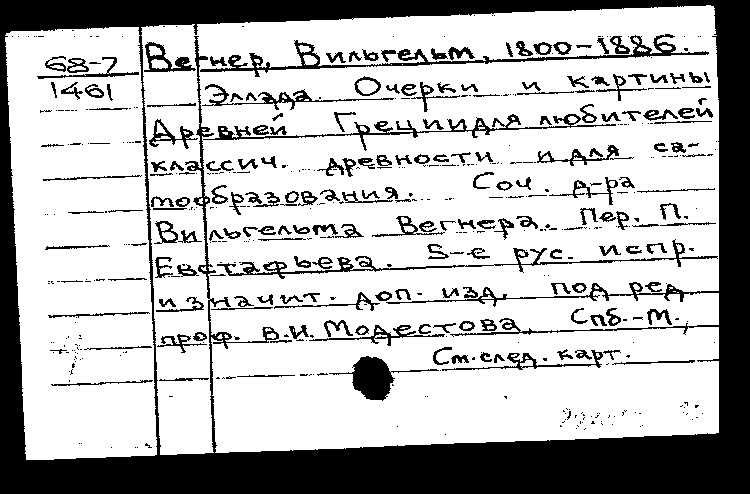 68-7
1461
Вегнер, Вильгельм, 1800-1886.
Эллада. Очерки и картины
Древней Греции для любителей
классич. древности и для са-
мообразования. Соч. д-ра
Вильгельма Вегнера. Пер. П.
Евстафьева. 5-е рус. испр.
и значит. доп. изд. под ред
проф. В.И. Модестова. Спб.-М.,
См. след. карт.